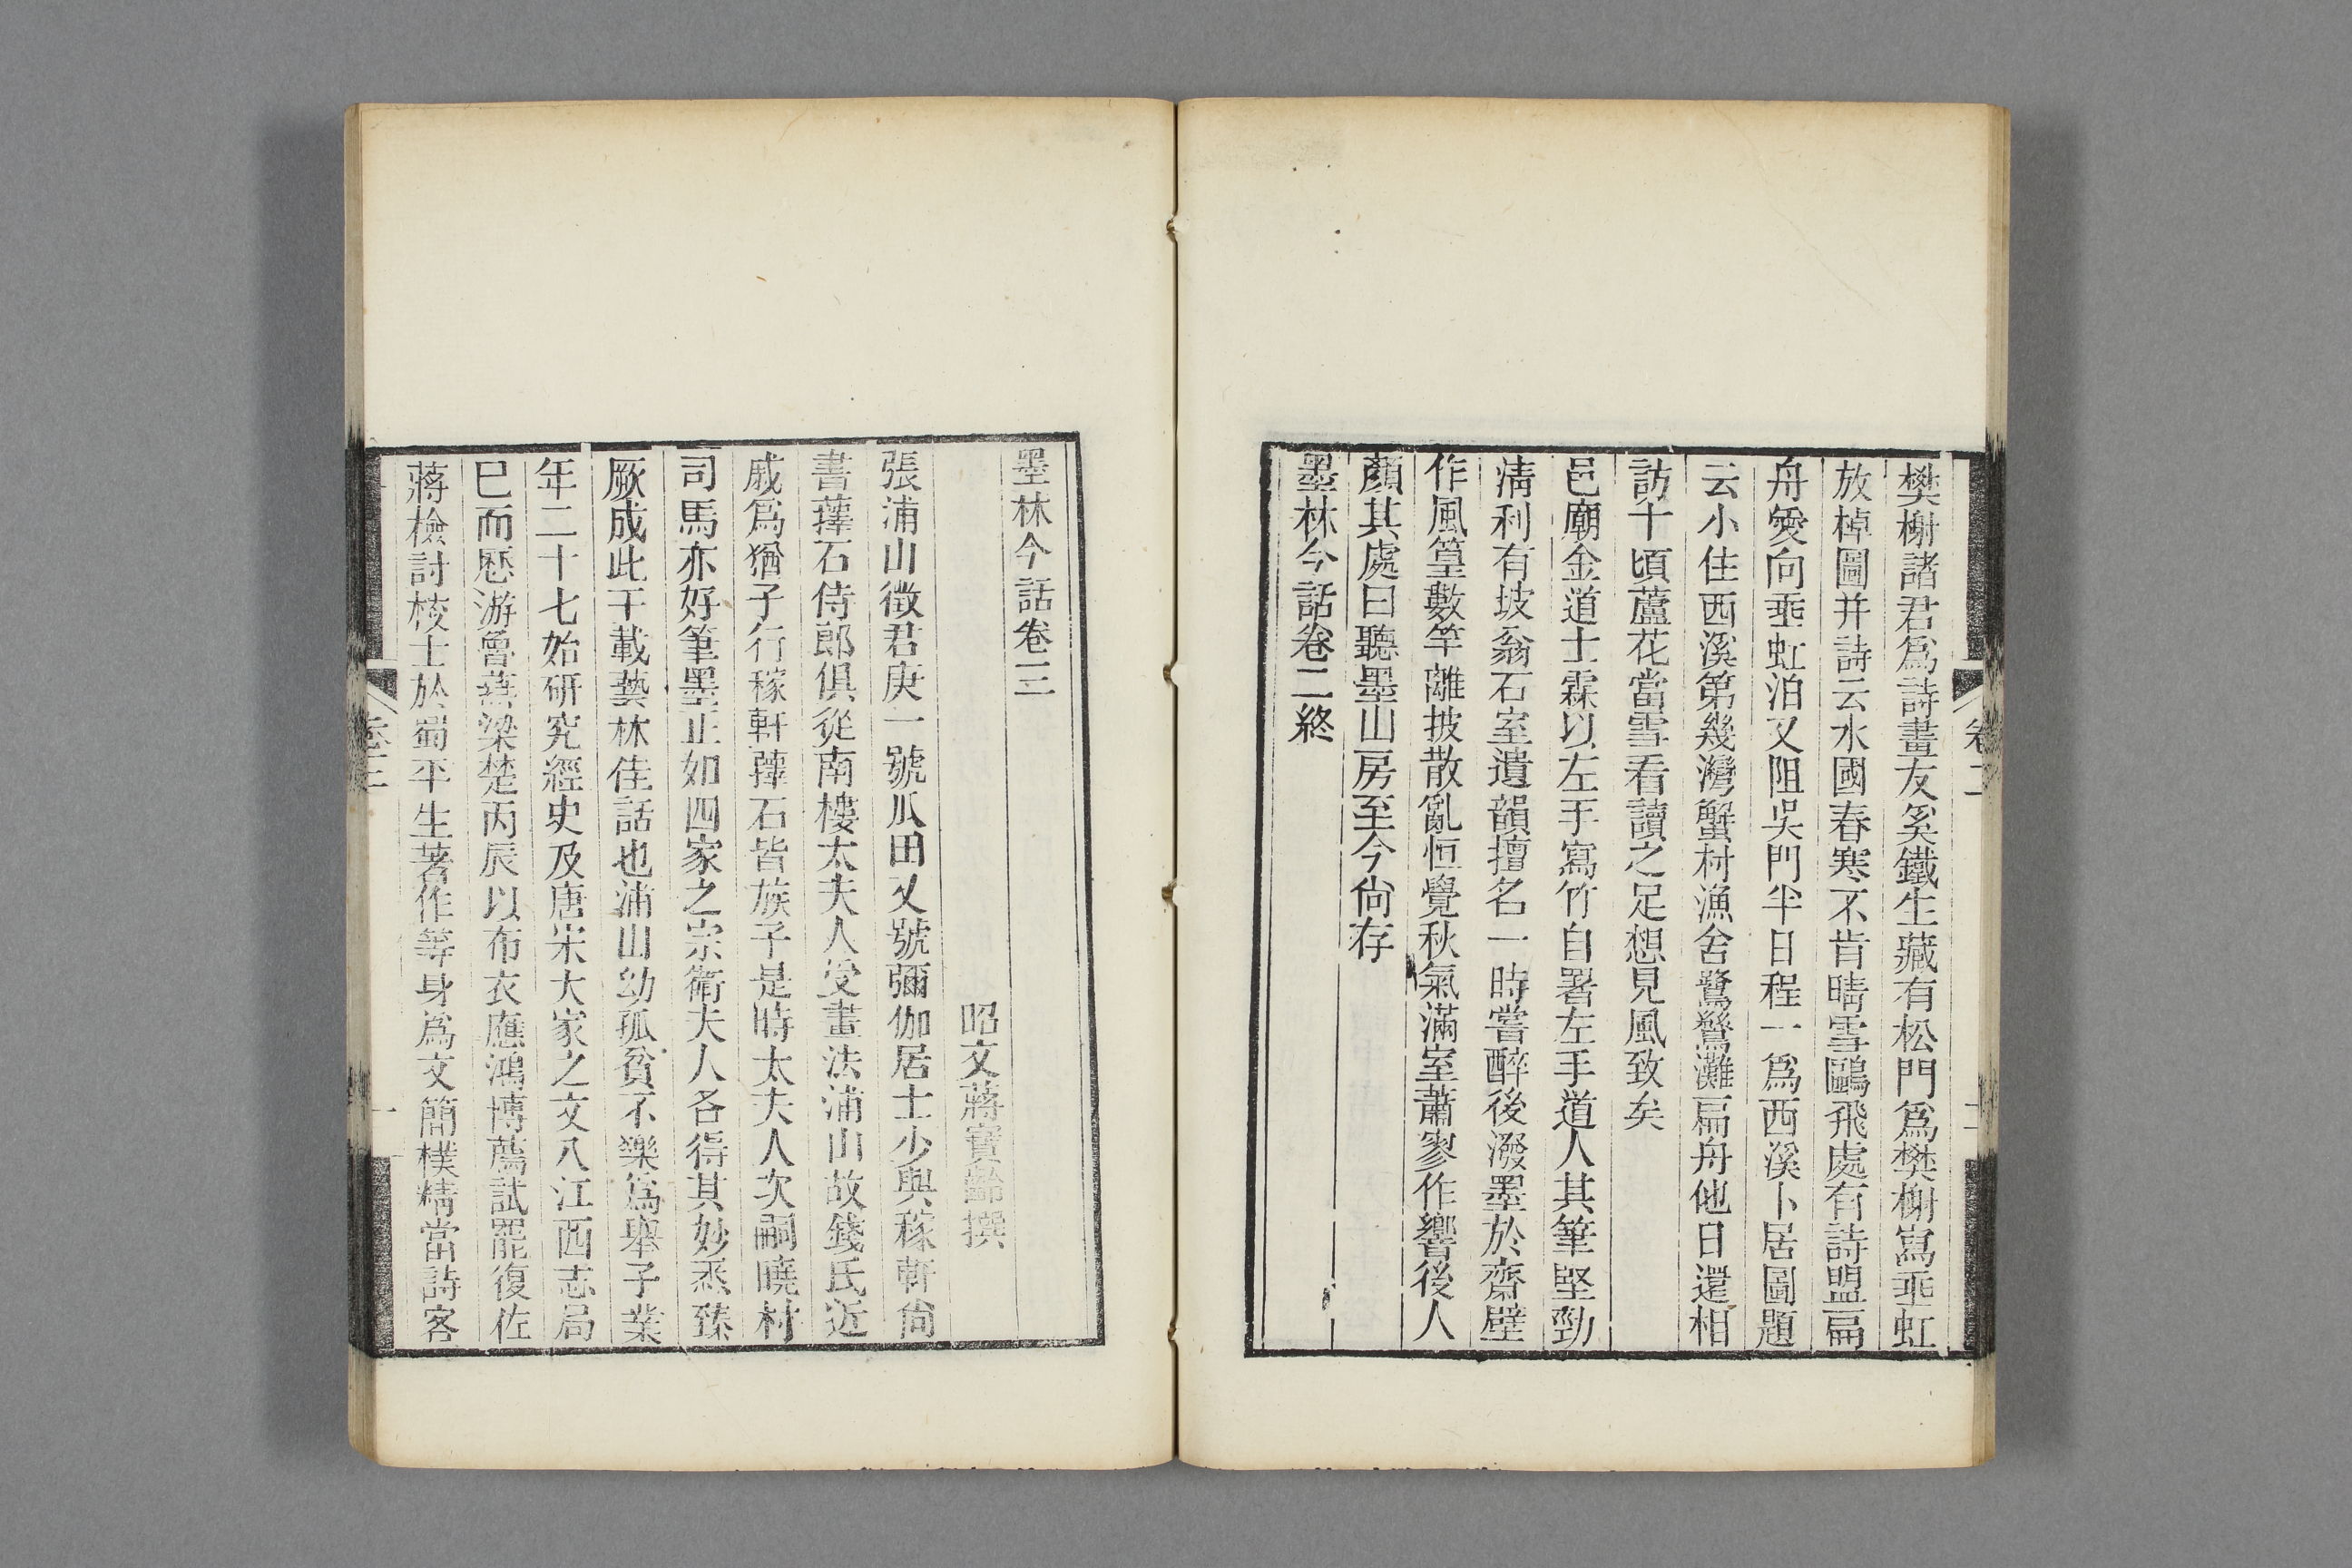 樊榭諸君爲詩畫友奚鐵生藏有松門爲樊榭寫垂虹
放棹圖并詩云水國春寒不肯晴雪鷗飛處有詩盟扁
舟愛向垂虹泊又阻吳門半日程一爲西溪卜居圖題
云小住西溪第幾灣蟹村漁舍鷺鷥灘扁舟他日還相
訪十頃蘆花當雪看讀之足想見風致矣
邑廟金道士霖以左手寫竹自署左手道人其筆堅勁
淸利有坡翁石室遺韻擅名一時嘗醉後潑墨於齋壁
作風篁數竿離披散亂恒覺秋氣滿室蕭寥作響後人
顏其處曰聽墨山房至今尙存
墨林今話卷二終
卷二
墨林今話卷三
昭文蔣寶齡撰
張浦山徵君庚一號瓜田又號彌伽居士少與稼軒尙
書蘀石侍郎俱從南樓太夫人受畫法浦山故錢氏近
戚爲猶子行稼軒蘀石皆族子是時太夫人次嗣曉村
司馬亦好筆墨正如四家之宗衛夫人各得其妙悉臻
厥成此千載藝林佳話也浦山幼孤貧不樂爲舉子業
年二十七始研究經史及唐宋大家之文入江西志局
巳而歷游魯燕梁楚丙辰以布衣應鴻博薦試罷復佐
蔣檢討校士於蜀平生著作等身爲文簡樸精當詩客
卷三
一